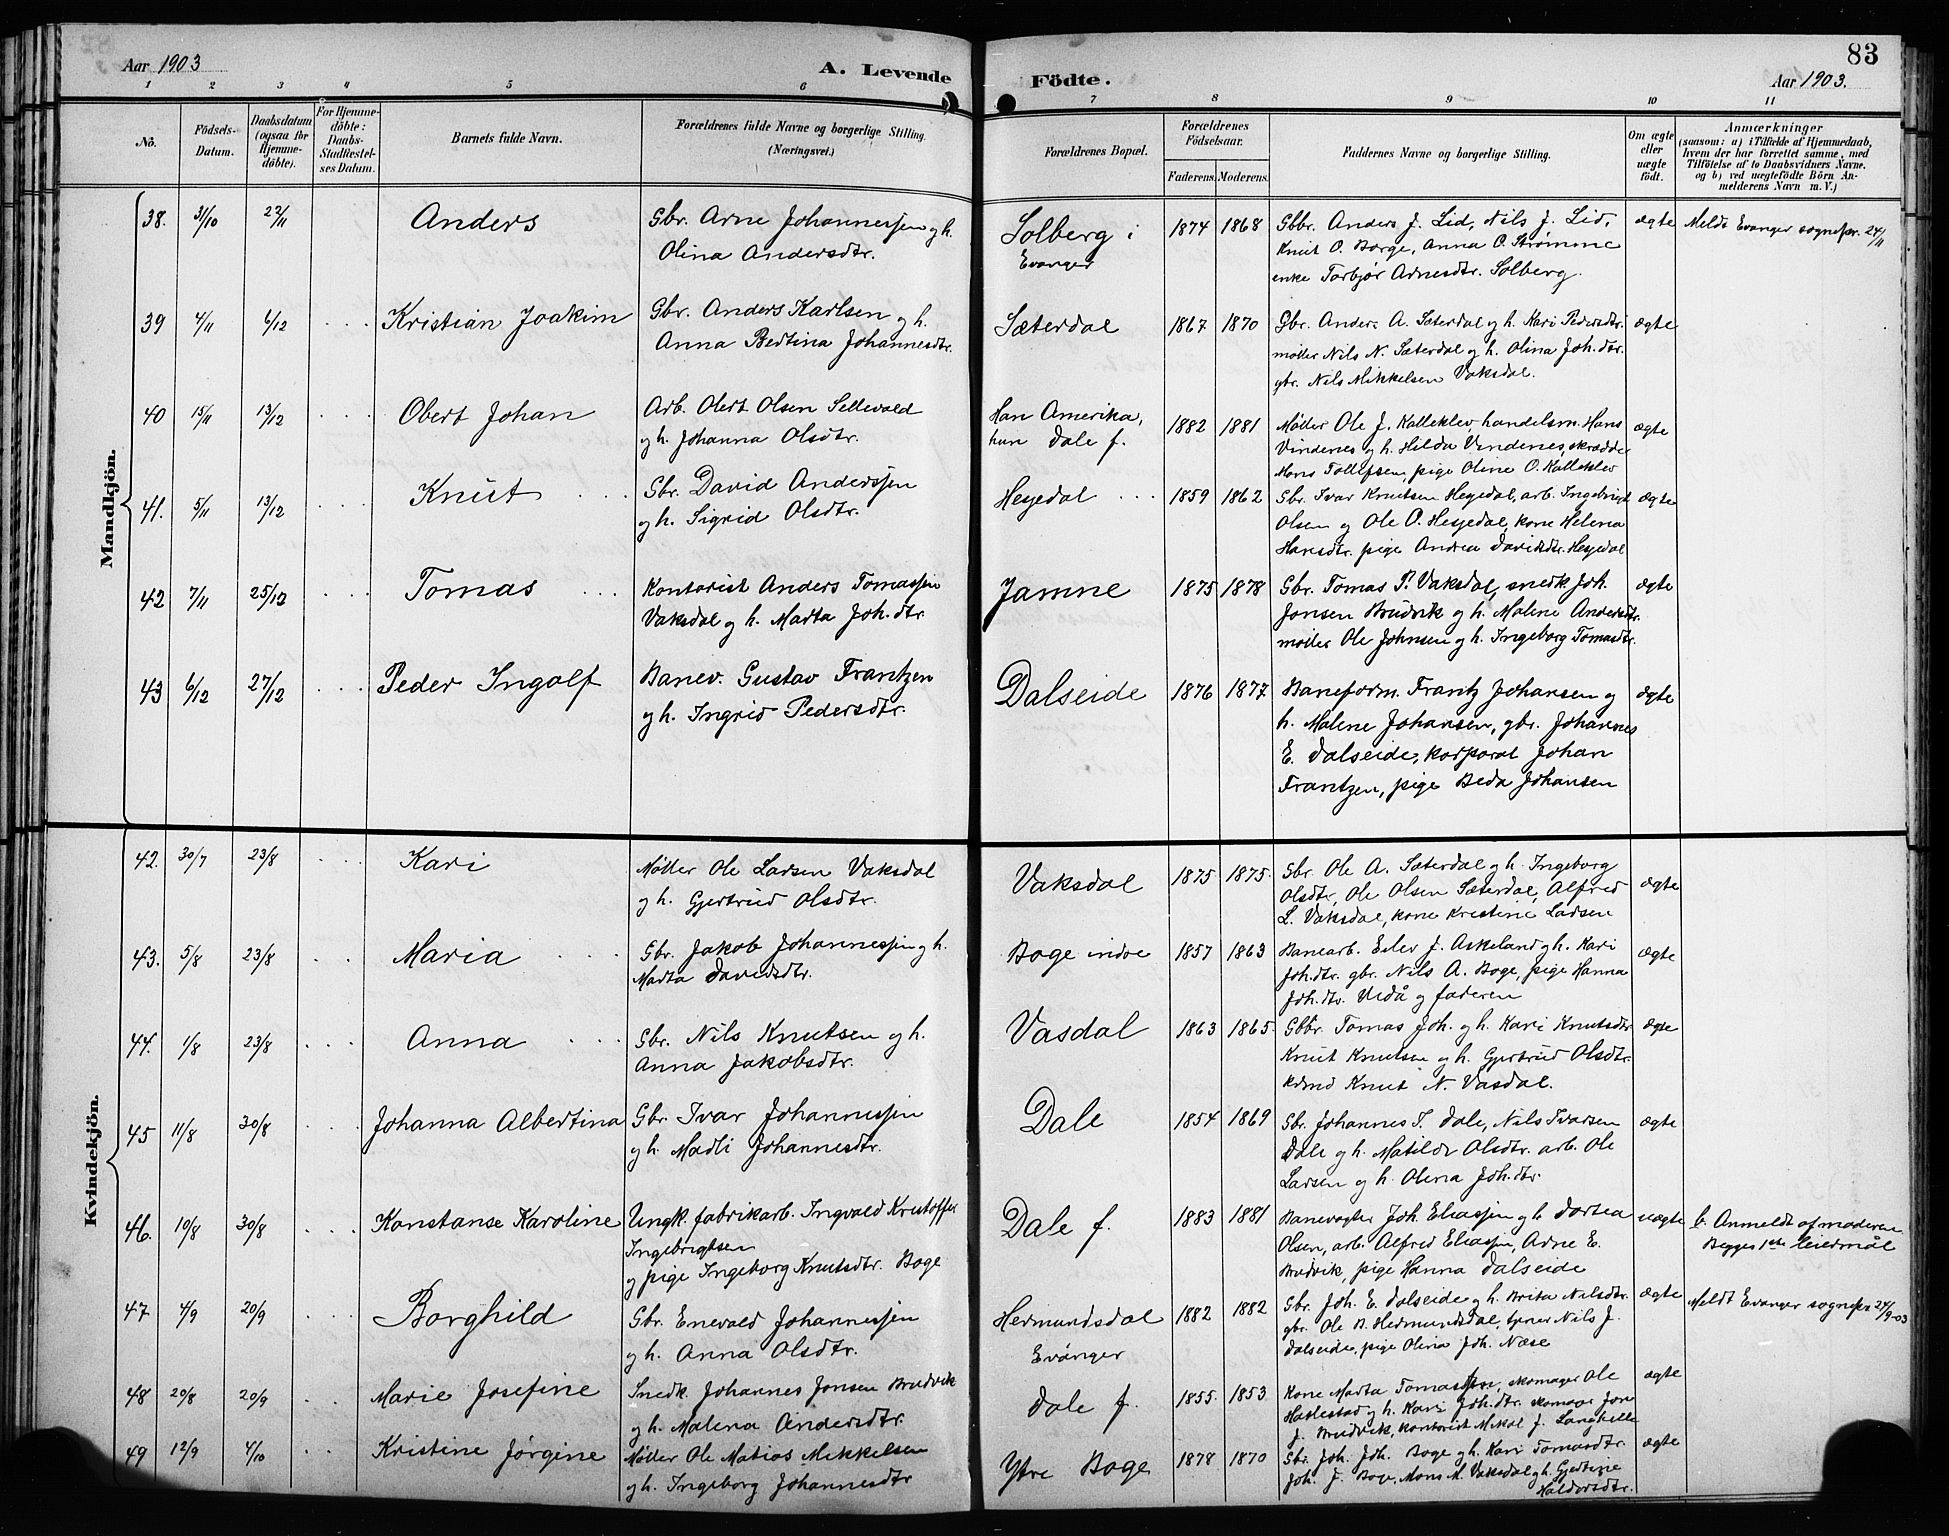 83
Aar 1903
A. Levende Födte.
Aar 1903.
1 2 3 4 5 6 7 8 9 10 11
No.
Födsels-Datum.
Daabsdatum (ogsaa for Hjemme-döbte).
For Hjemme-döbte: Daabs-Stadfæstel-ses Datum.
Barnets fulde Navn.
Forældrenes fulde Navne og borgerlige Stilling. (Næringsvei.)
Forældrenes Bopæl.
Forældrenes Födselsaar.
Faderens. Moderens.
Faddernes Navne og borgerlige Stilling.
Om ægte eller uægte födt.
Anmærkninger
(saasom: a) i Tilfælde af Hjemmedaab,
hvem der har forrettet samme, med
Tilföielse af to Daabsvidners Navne.
og b) ved uægtefödte Börn An-
melderens Navn m. V.)
Mandkjön.
38. 31/10 22/11 Anders Gbr. Arne Johannessen og h.
Olina Andersdtr.
Solberg i
Evanger
1874 1868 Gbbr. Anders J. Lid, Nils J. Lid,
Knut O. Borge, Anna O. Strømme
enke Torbjør Arnesdtr. Solberg.
ægte Meldt Evanger sognepr. 24/11
39 4/11 6/12 Kristian Joakim Gbr. Anders Karlsen og h.
Anna Bertina Johannesdtr.
Sæterdal 1867 1870 Gbr. Anders A. Sæterdal og h. Kari Pedersdtr.
møller Nils N. Sæterdal og h. Olina Joh.dtr.
gbr. Nils Mikkelsen Vaksdal.
ægte
40 15/11 13/12 Obert Johan Arb. Olert Olsen Sellevold
og h. Johanna Olsdtr.
Han Amerika,
hun Dale f.
1882 1881 Møller Ole J. Kalleklev handelsm. Hans
Vindenes og h. Hilda Vindenes, skrædder
Mons Tollefsen pige Oline O. Kalleklev
ægte
41. 5/11 13/12 Knut Gbr. David Anderssen
og h. Sigrid Olsdtr.
Hesjedal 1859 1862 Gbr. Ivar Knutsen Hesjedal, arb. Ingebrigt
Olsen og Ole O. Hesjedal, kone Helena
Hansdtr. pige Andrea Davidsdtr. Hesjedal
ægte
42 7/11 25/12 Tomas Kontorist Anders Tomassen
Vaksdal og h. Marta Joh.dtr.
Jamne 1875 1878 Gbr. Tomas P. Vaksdal, snedk Joh.
Jonsen Brudvik og h. Malene Andersdtr.
møller Ole Johnsen og h. Ingeborg Tomasdtr.
ægte
43 6/12 27/12 Peder Ingolf Banev. Gustav Frantzen
og h. Ingrid Pedersdtr.
Dalseide 1876 1877 Baneform. Frantz Johansen og
h. Malene Johansen, gbr. Johannes
E. Dalseide, korporal Johan
Frantzen, pige Beda Johansen
ægte
Kvindekjön.
42. 30/7 23/8 Kari Møller Ole Larsen Vaksdal
og h. Gjertrud Olsdtr.
Vaksdal 1875 1875. Gbr. Ole A. Sæterdal og h. Ingeborg
Olsdtr, Ole Olsen Sæterdal, Alfred
L. Vaksdal, kone Kristine Larsen
ægte
43. 5/8 23/8 Maria Gbr. Jakob Johannessen og h.
Marta Davidsdtr.
Boge indre 1857 1863 Banearb. Eilev J. Askeland og h. Kari
Joh.dtr. gbr. Nils A. Boge, pige Hanna
Joh.dtr. Urdå og faderen
ægte
44. 1/8 23/8 Anna Gbr. Nils Knutsen og h.
Anna Jakobsdtr.
Vasdal 1863 1865. Gbbr. Tomas Joh. og h. Kari Knutsdtr
Knut Knutsen og h. Gjertrud Olsdtr.
Knut N. Vasdal.
ægte
45 11/8 30/8 Johanna Albertina Gbr. Ivar Johannessen
og h. Madli Johannesdtr.
Dale 1854 1869 Gbr. Johannes I. Dale, Nils Ivarsen
Dale og h. Matilde Olsdtr. arb. Ole
Larsen og h. Olena Joh.dtr.
ægte
46. 10/8 30/8 Konstanse Karoline Ungk. fabrikarb. Ingvald Kristoffer
Ingebrigtsen
og pige Ingeborg Knutsdtr. Boge
Dale f. 1883 1881 Banevogter Joh. Eliassen og h. Dortea
Olsen, arb. Alfred Eliassen, Arne E.
Brudvik, pige Hanna Dalseide
uægte b. Anmeldt af moderen
Begges 1ste leiermål
47 4/9 20/9 Borghild Gbr. Enevald Johannessen
og h. Anna Olsdtr.
Hermundsdal
Evånger
1882 1882 Gbr. Joh. E. Dalseide og h. Brita Nilsdtr.
gbr. Ole B. Hermundsdal, Nils J.
Dalseide, pige Olina Joh. Næse
ægte Meldt Evanger sognepr 24/9-03
48 20/8 20/9 Marie Josefine Snedk. Johannes Jonsen Brudvik
og h. Malena Andersdtr.
Dale f. 1855. 1853 Kone Marta Tomasdtr, skomager Ole
Hatlestad og h. Kari Joh.dtr. skomager Jon
J. Brudvik, kontorist Mikal J. Langhelle
ægte
49 12/9 4/10 Kristine Jørgine Møller Ole Matias Mikkelsen
og h. Ingeborg Johannesdtr
Ytre Boge 1878 1870 Gbr. Joh. Joh. Boge og h. Kari Tomasdtr.
Joh. J. Boge, Mons M. Vaksdal og h. Gjertine
Haldorsdtr.
ægte